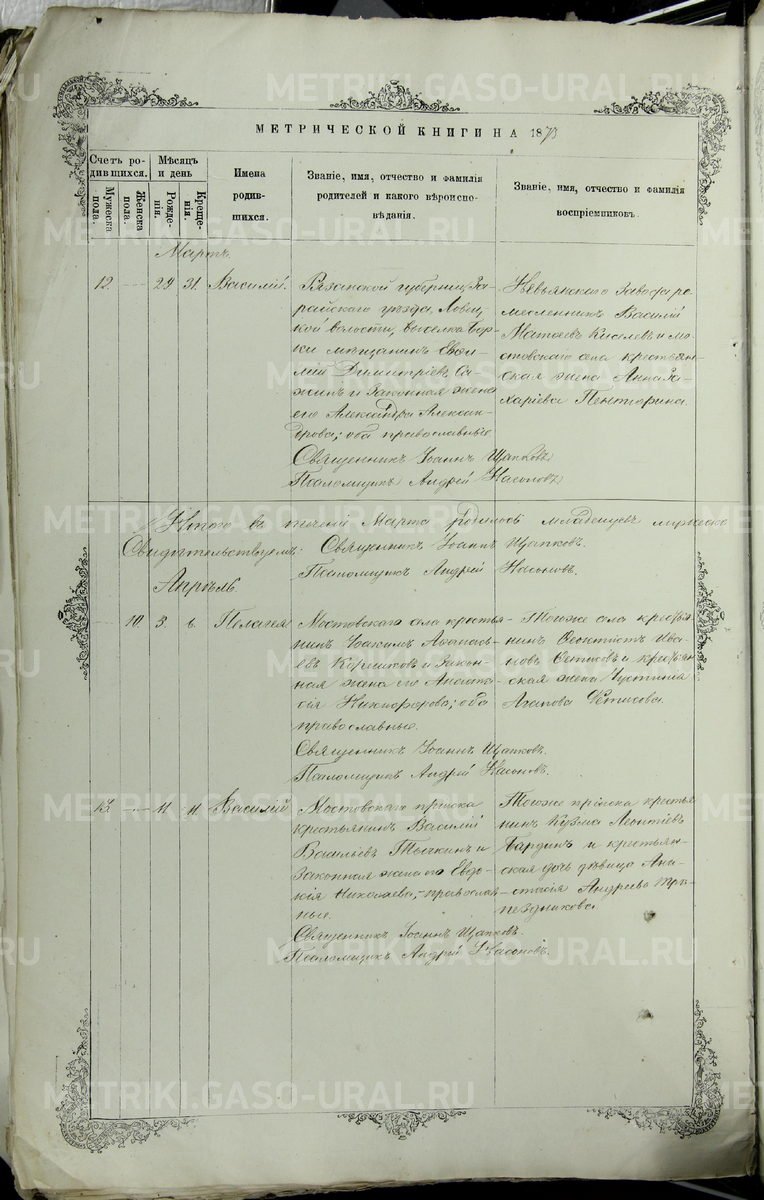 МЕТРИЧЕСКОЙ КНИГИ НА 1873
Счетъ ро-
дившихся.
Мужеска
пола.
Женска
пола.
Мѣсяцъ
и день
Рожде-
нія.
Креще-
нія.
Имена
родив-
шихся.
Званіе, имя, отчество и фамилія
родителей и какого вѣроиспо-
вѣданія.
Званіе, имя, отчество и фамилія
воспріемниковъ.
Мартъ.
12. 29 31. Василій.
Рязанской губерніи, За-
райскаго уѣзда, Ловец-
кой волости, выселка Бор-
ки мѣщанинъ Евѳи-
мій Димитріевъ Са-
жинъ и законная жена
его Александра Алексан-
дрова; оба православные
Священникъ Іоаннъ Щапковъ
Псаломщикъ Андрей Насоновъ
Невьянскаго завода ре-
месленникъ Василій
Матѳеевъ Киселевъ и мо-
стовскаго села крестьян-
ская жена Анна За-
харіева Пентюрина.
Итого въ теченіи Марта родилось младенцевъ мужеска
Свидѣтельствуемъ: Священникъ Іоаннъ Щапковъ.
Псаломщикъ Андрей Насоновъ.
Апрѣль
10 3. 6. Пелагея
Мостовскаго села кресть-
нинъ Іоакимъ Аѳанась-
евъ и закон-
ная жена его Анаста-
сія Никифорова; оба
православные.
Священникъ Іоаннъ Щапковъ.
Псаломщикъ Андрей Насоновъ.
Тогоже села крестья-
нинъ Ѳеоктистъ Ива-
новъ и крестьян-
ская жена Іустинія
Агапова Фетисова.
13. 11. 11. Василій
Мостовскаго пріиска
крестьянинъ Василій
Васильевъ Тычкинъ и
законная жена его Евдо-
кія Николаева; православ-
ные.
Священникъ Іоаннъ Щапковъ.
Псаломщикъ Андрей Насоновъ.
Тогоже пріиска крестья-
нинъ Кузма Леонтіевъ
Бардинъ и крестьян-
ская дочь дѣвица Ана-
стасія Андреева Тра-
пезникова
METRIKI.GASO-URAL.RU